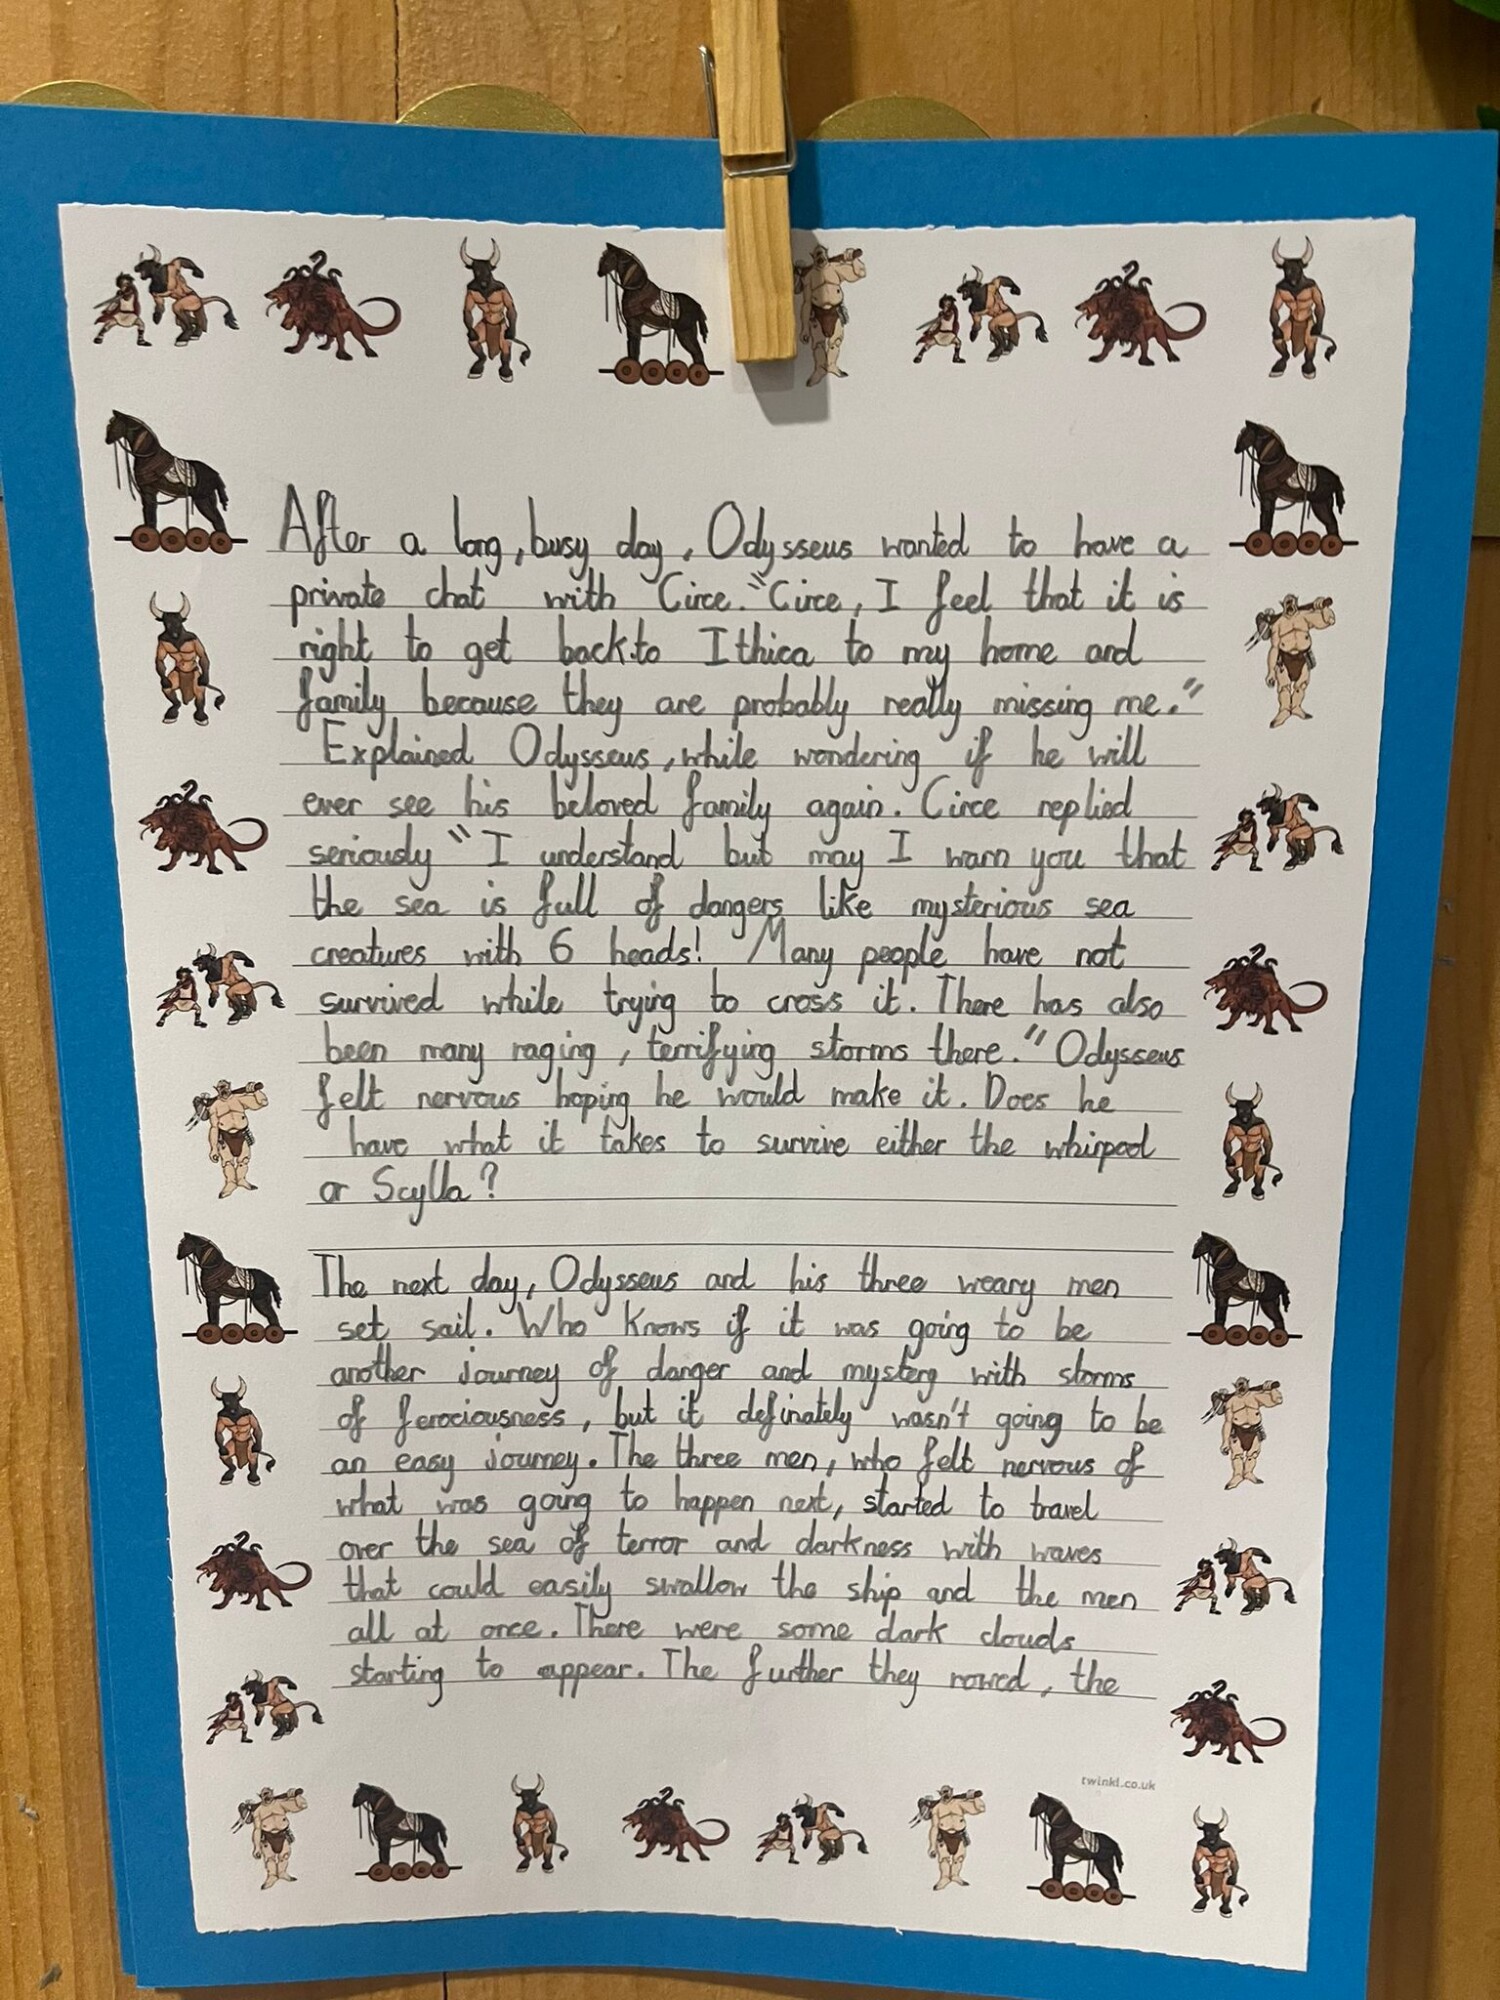 After a long, busy day, Odysseus wanted to have a
private chat with Circe. "Circe, I feel that it is
right to get back.to Ithica to my home and
family because they are probably really missing me."
Explained Odysseus, while wondering if he will
ever see his beloved family again. Circe replied
seriously "I understand but may I warn you that
the sea is full of dangers like mysterious sea
creatures with 6 heads! Many people have not
survived while trying to cross it. There has also
been many raging, terrifying storms there." Odysseus
felt nervous hoping he would make it. Does he
have what it takes to survive either the whirpool
or Scylla?
The next day, Odysseus and his three weary men
set sail. Who knows if it was going to be
another journey of danger and mystery with storms
of ferociousness, but it definately wasn't going to be
an easy journey. The three men, who felt nervous of
what was going to happen next, started to travel
over the sea of terror and darkness with waves
that could easily swallow the ship and the men
all at once. There were some dark clouds
starting to appear. The further they rowed, the
twinkl.co.uk